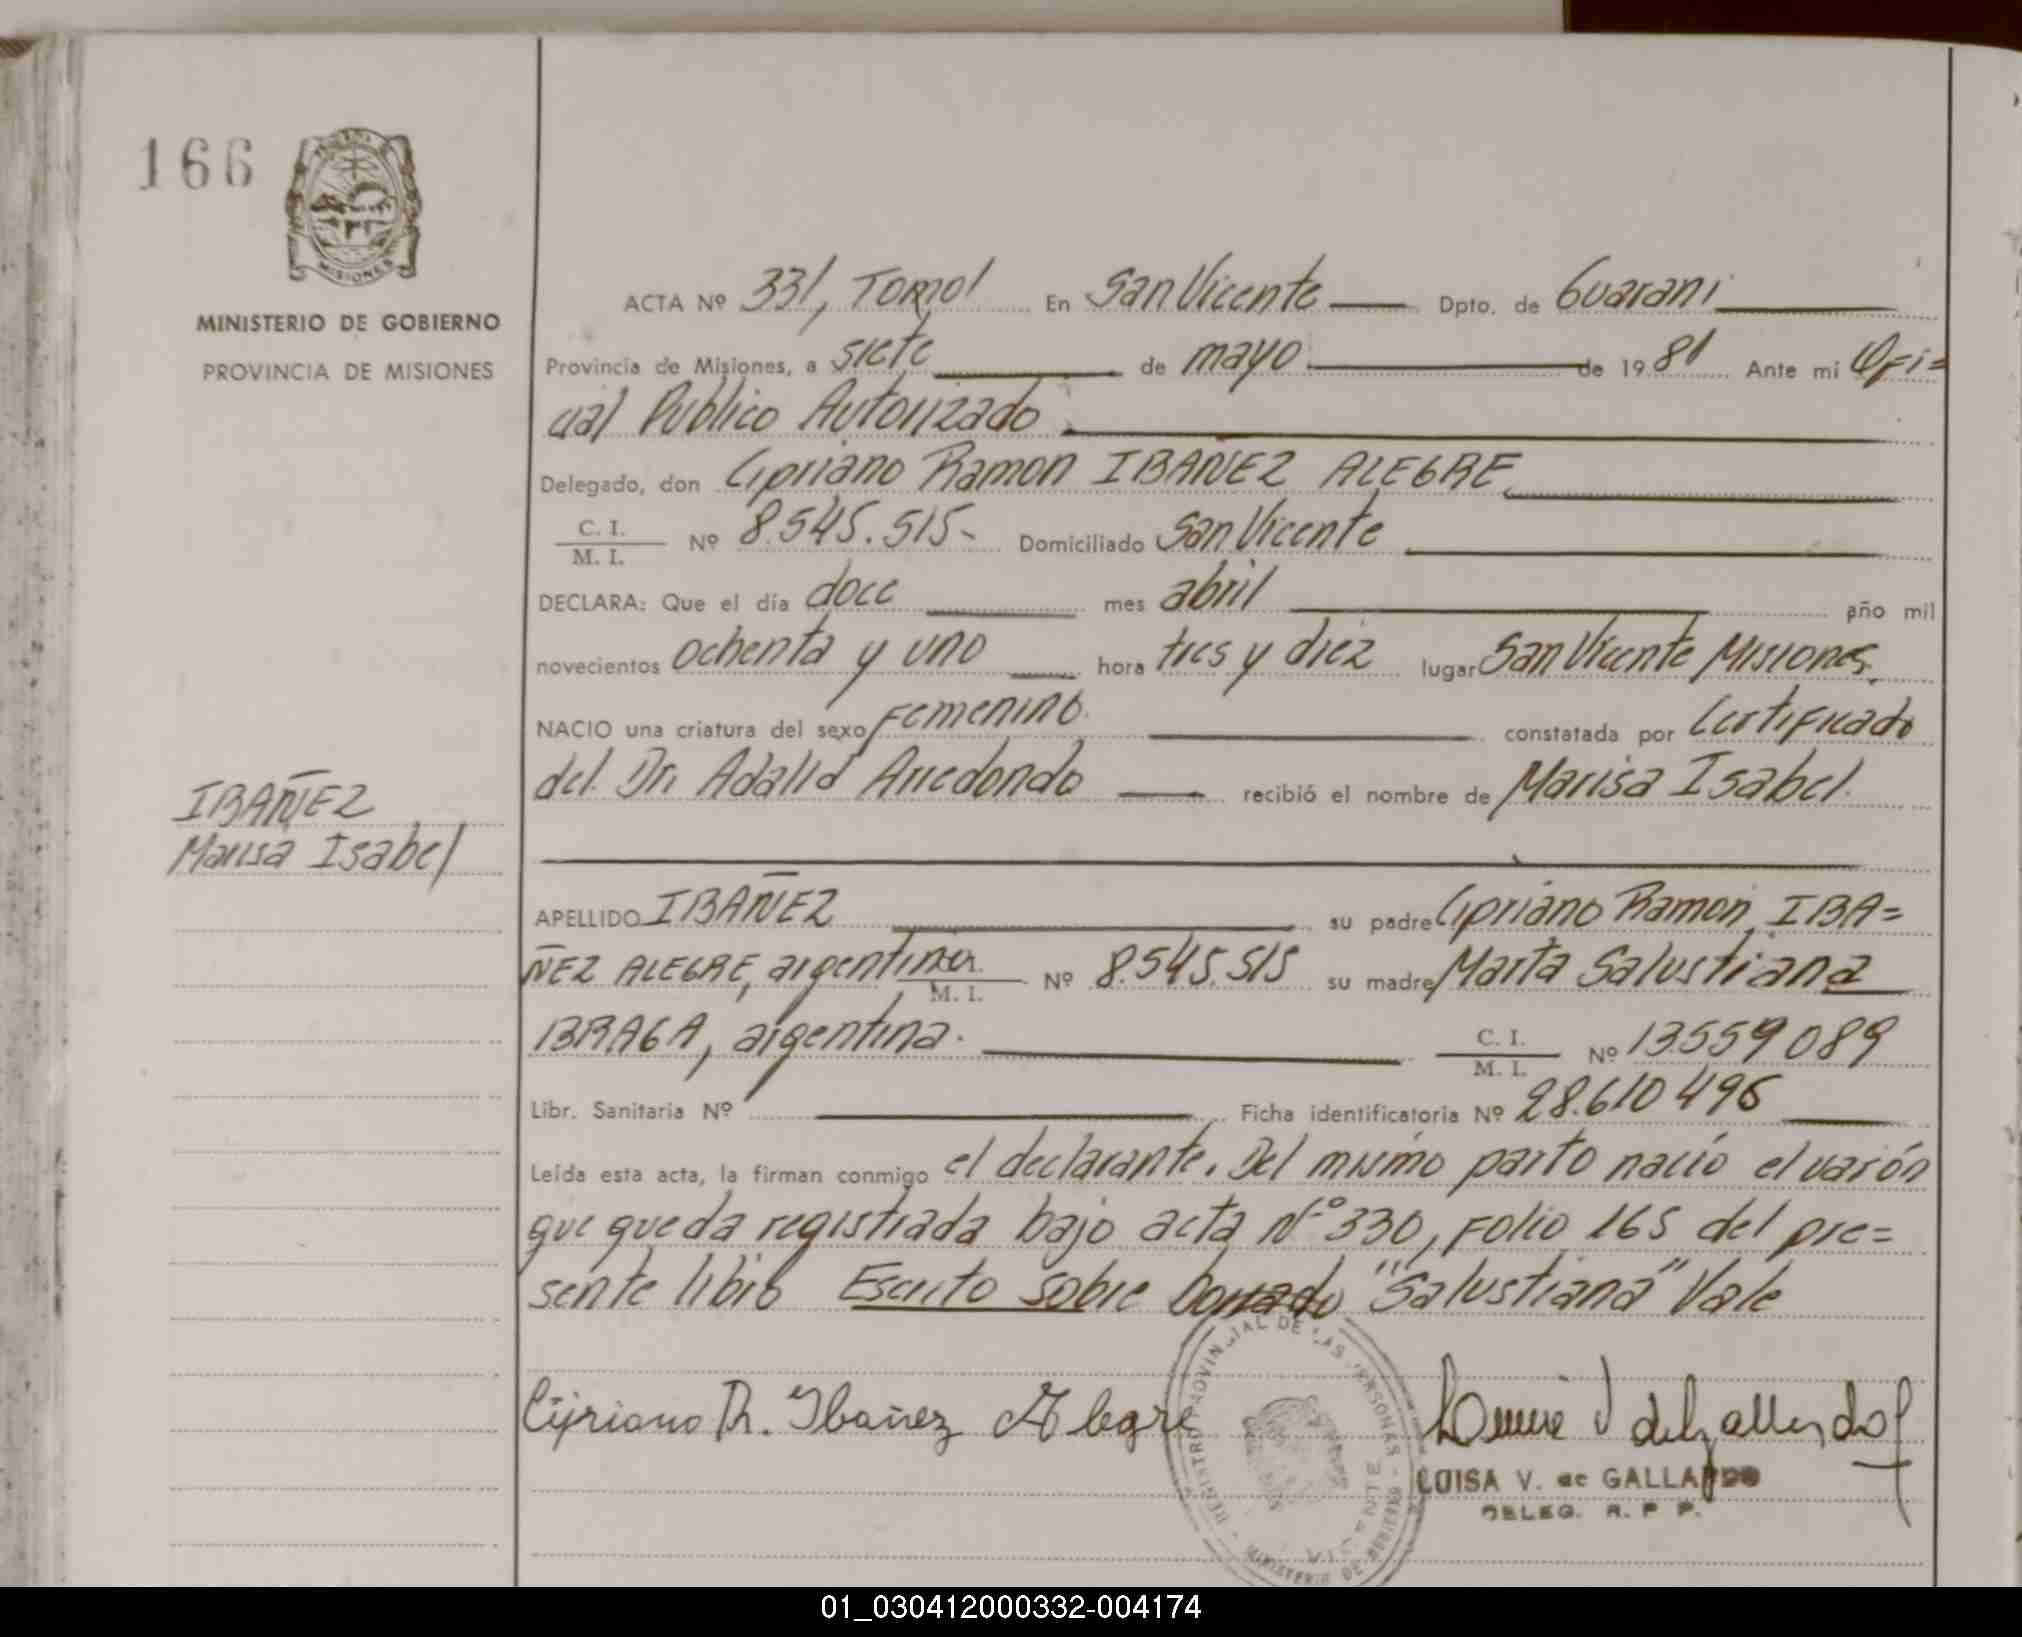 166
MISIONES
MINISTERIO DE GOBIERNO
PROVINCIA DE MISIONES
ACTA Nº 331, Tomo I En San Vicente Dpto. de Guarani
Provincia de Misiones, a siete de mayo de 1981 Ante mi Ofi=
cial Publico Autorizado
Delegado, don Cipriano Ramon IBAÑEZ ALEGRE
C. I.
M. I. Nº 8.545.515- Domiciliado San Vicente
DECLARA: Que el día doce mes abril año mil
novecientos ochenta y uno hora tres y diez lugar San Vicente Misiones.
NACIO una criatura del sexo Femenino. constatada por Certificado
del Dr. Adalid Arredondo recibió el nombre de Marisa Isabel.
IBAÑEZ
Marisa Isabel
APELLIDO IBAÑEZ su padre Cipriano Ramon IBA=
ÑEZ ALEGRE, argentino M. I. Nº 8.545.515 su madre Marta Salustiana
BRAGA, argentina. C. I.
M. I. Nº 13559089
Libr. Sanitaria Nº Ficha identificatoria Nº 28.610496
Leída esta acta, la firman conmigo el declarante. Del mismo parto nació el varón
que queda registrada bajo acta Nº 330, Folio 165 del pre=
sente libro Escrito sobre borrado "Salustiana" Vale
Cipriano R. Ibañez Alegre
REGISTRO PROVINCIAL DE LAS PERSONAS
MINISTERIO DE
LUISA V. de GALLARDO
DELEG. R. P. P.
01_030412000332-004174